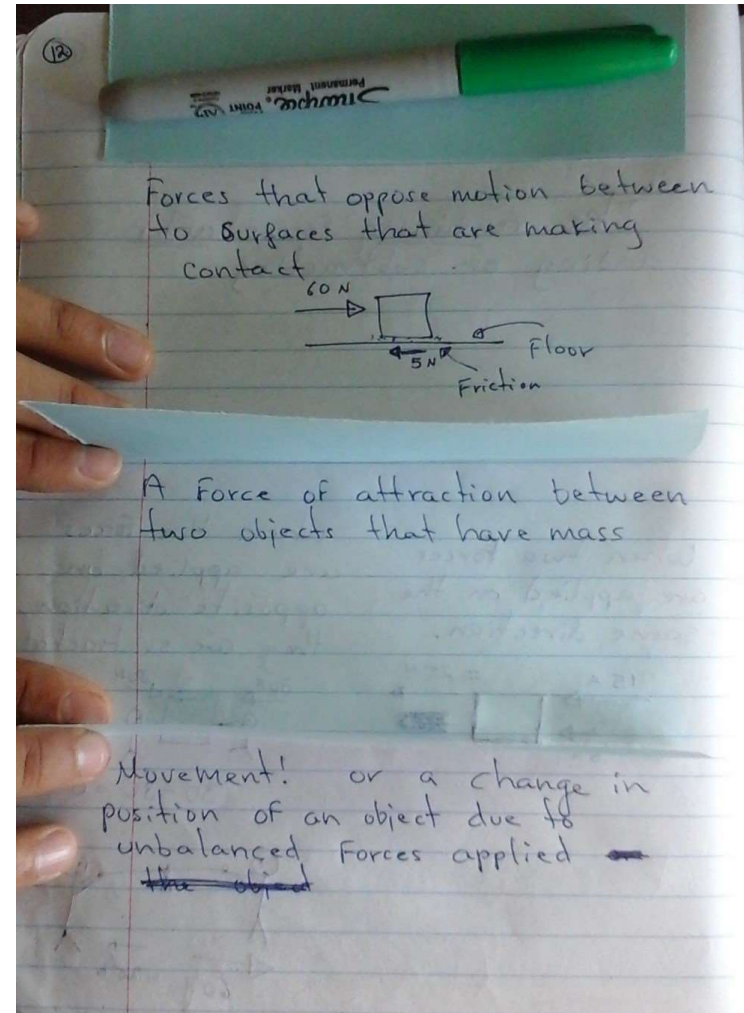 12
Sharpie
Permanent Marker
Forces that oppose motion between
to surfaces that are making
contact
60 N
5 N
Floor
Friction
A Force of attraction between
two objects that have mass
Movement! or a change in
position of an object due to
unbalanced Forces applied
the object